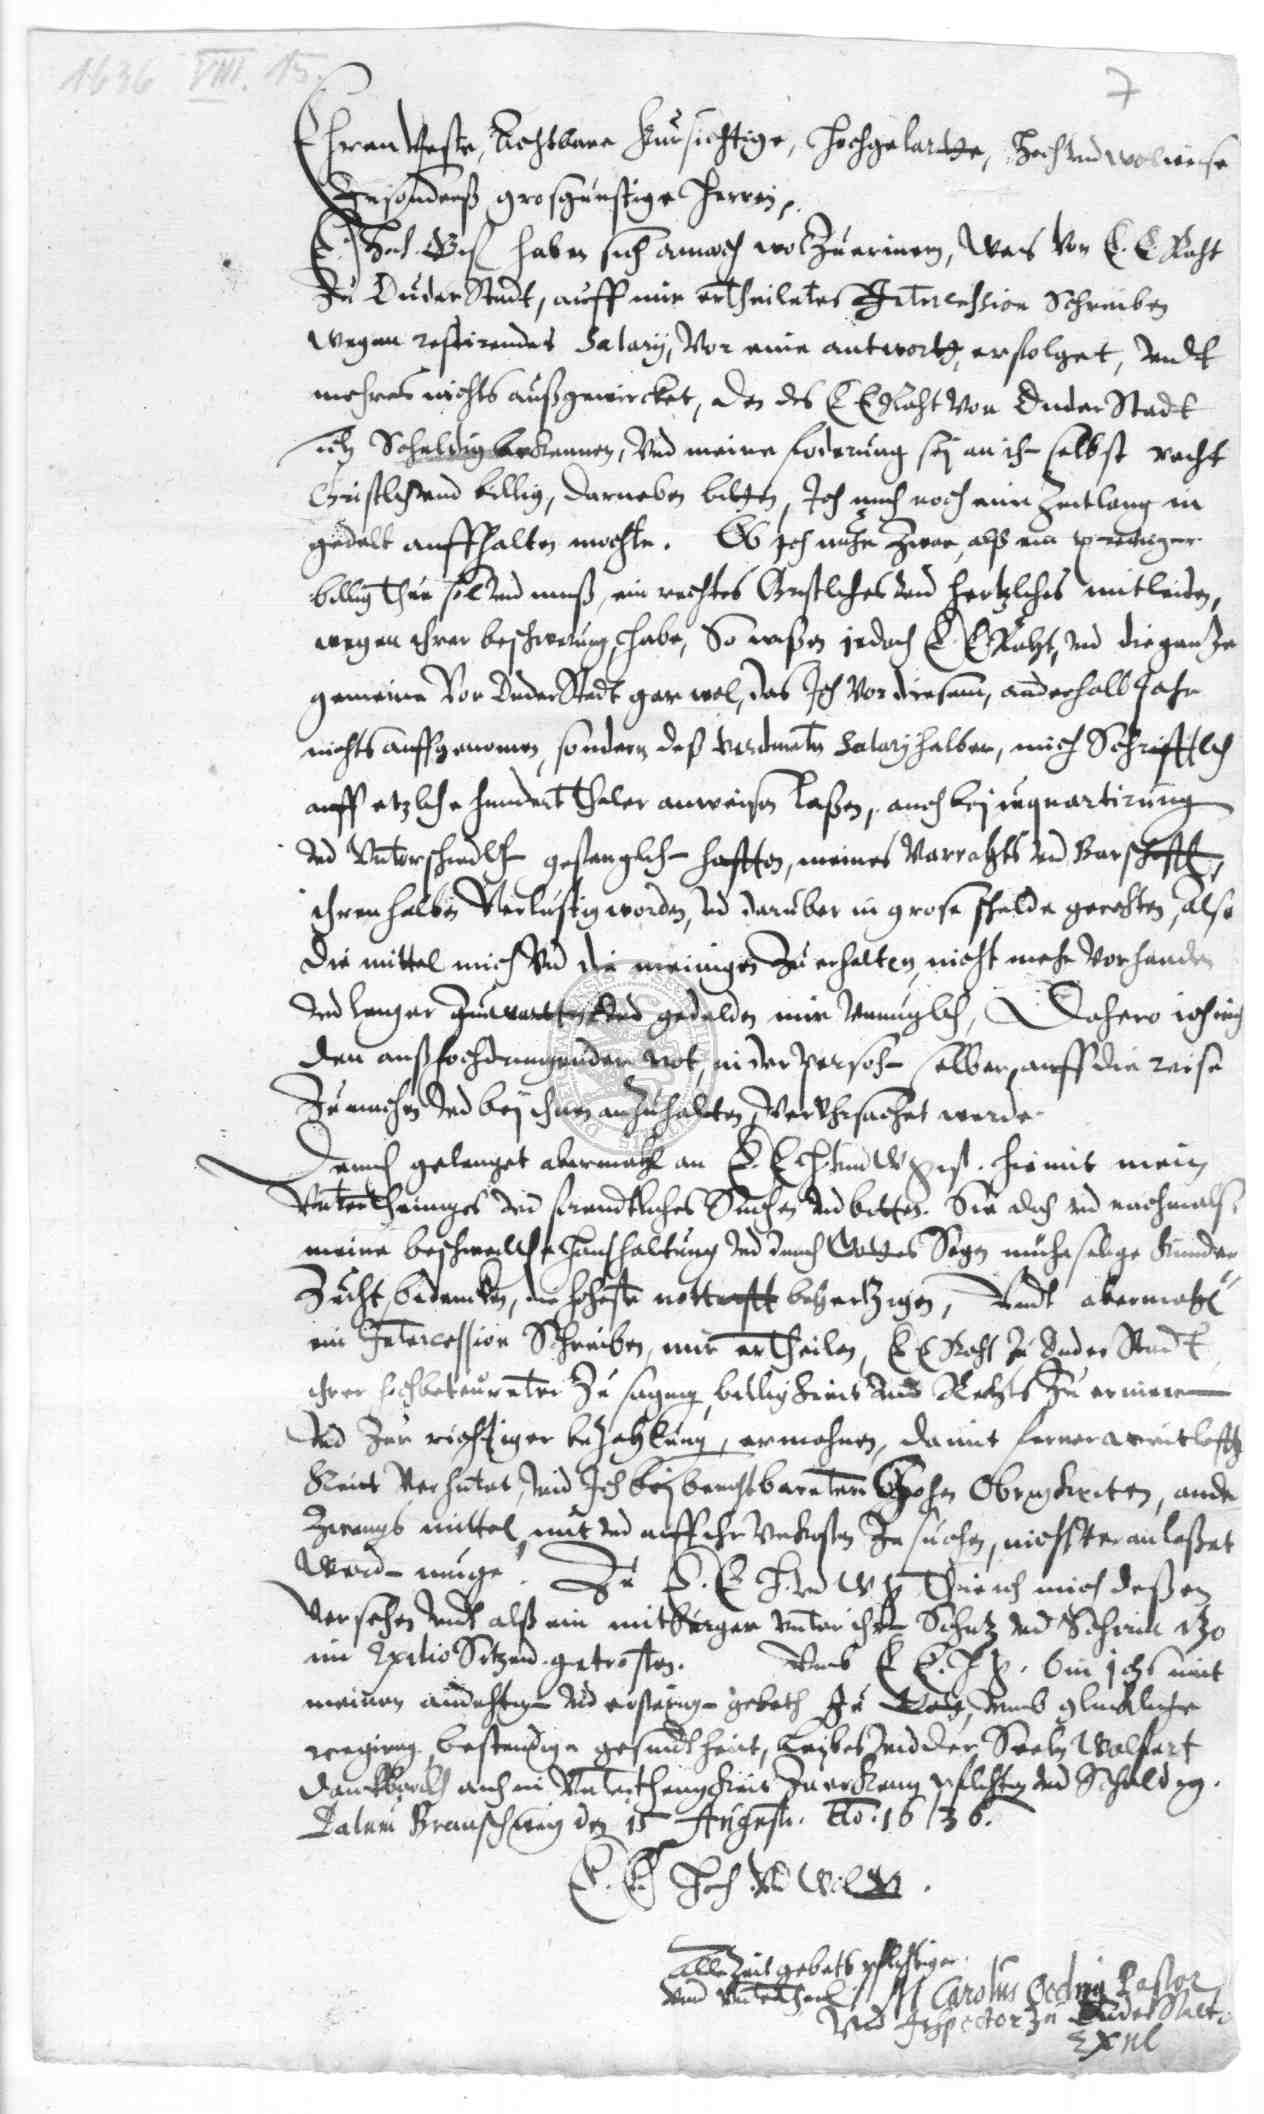 1636 VIII. 15.
7
Ehrenveste, Achtbare Fursichtige, Hochgelarte, Hoch und wolweise
Insonderß grosgunstige Herren,
E. Hoch. W. haben sich annoch wol zu erinern, was von E. E. Raht
zu DuderStadt, auff mir ertheiletes Intercession Schreiben
wegen restirendes Salarij, vor eine antwortt, erfolget, undt
mehres nichts außgewircket, den des E E Raht von DuderStadt
sich Schuldig bekennen, und meine foderung sej an sich selbst recht
Christlich und billig, darneben bitten, Ich mich noch eine Zeitlang in
gedult auffhalten mochte. Ob ich nuhn Zwar, alß ein prediger
billig thun sol und muß, ein rechtes Christliches und hertzliches mitleiden,
wegen ihrer beschwerung habe, So wißen jedoch E. E. Raht, und die gantze
gemeine Vor DuderStadt gar wol, das Ich vor diesem, anderhalb Jahr
nichts auffgenomen, sondern deß verdienten Salarij halber, mich Schrifftlich
auff etzliche hundert thaler anweisen laßen, auch bej inquartirung
und unterschiedlich gefenglich hafften, meines Vorrahts und Barschafft,
ihrenhalben verlustig worden, und daruber in grose schulde gerahten, also
die mittel mich und die meinigen zu erhalten, nicht mehr vorhanden
und lenger zuwarten und gedulden mir unmuglich, Dahero ich mich
den auß hochdringender not, in der person selber, auff die reise
zu machen und bej ihnen anzuhalten, verUhrsachet werde.
Demnach gelanget abermahl an E. E. H. und W hiemit mein
Unterthaniges und freundtliches Suchen und bitten. Sie doch und nachmals
meine beschwerliche Haushaltung und durch Gottes Segen muheselige Kinder
Zucht, bedencken, die hoheste notturfft behertzigen, Undt abermahl
ein Intercession Schreiben, mir ertheilen, E E Raht zu DuderStadt
ihrer hochbeteurten Zusagung, billigkeit und Rechts zu erinern
und zur richtiger bezahlung, ermahnen, damit ferner weitleufftig
Keit verhutet, und Ich bej hohen Obrigkeiten, andere
Zwangs mittel, mit und auff ihr unkosten zu suchen, nicht veranlaßet
werden muge. Zu E. E H. und W thue ich mich deßen
versehen undt alß ein mitburger unter ihren Schutz und Schirm itzo
im Exilio Sitzend getrosten. Umb E E. H. bin ichs mit
meinen andechtigen und gebeth zu Gott, umb gluckliche
regirung bestendige gesundtheit, Leibes und der Seelen Wolfart
danckbarlich auch in Unterthenigkeit zuerkennen pflichtig und Schuldig.
Datum Braunschweig den 15 Augusti. Ao. 1636.
E. E Hoch. und Wolw.
Alle Zeit gebets pflichtiger
und Unterthenig M Carolus Pastor
und Inspector zu DuderStadt
Exul